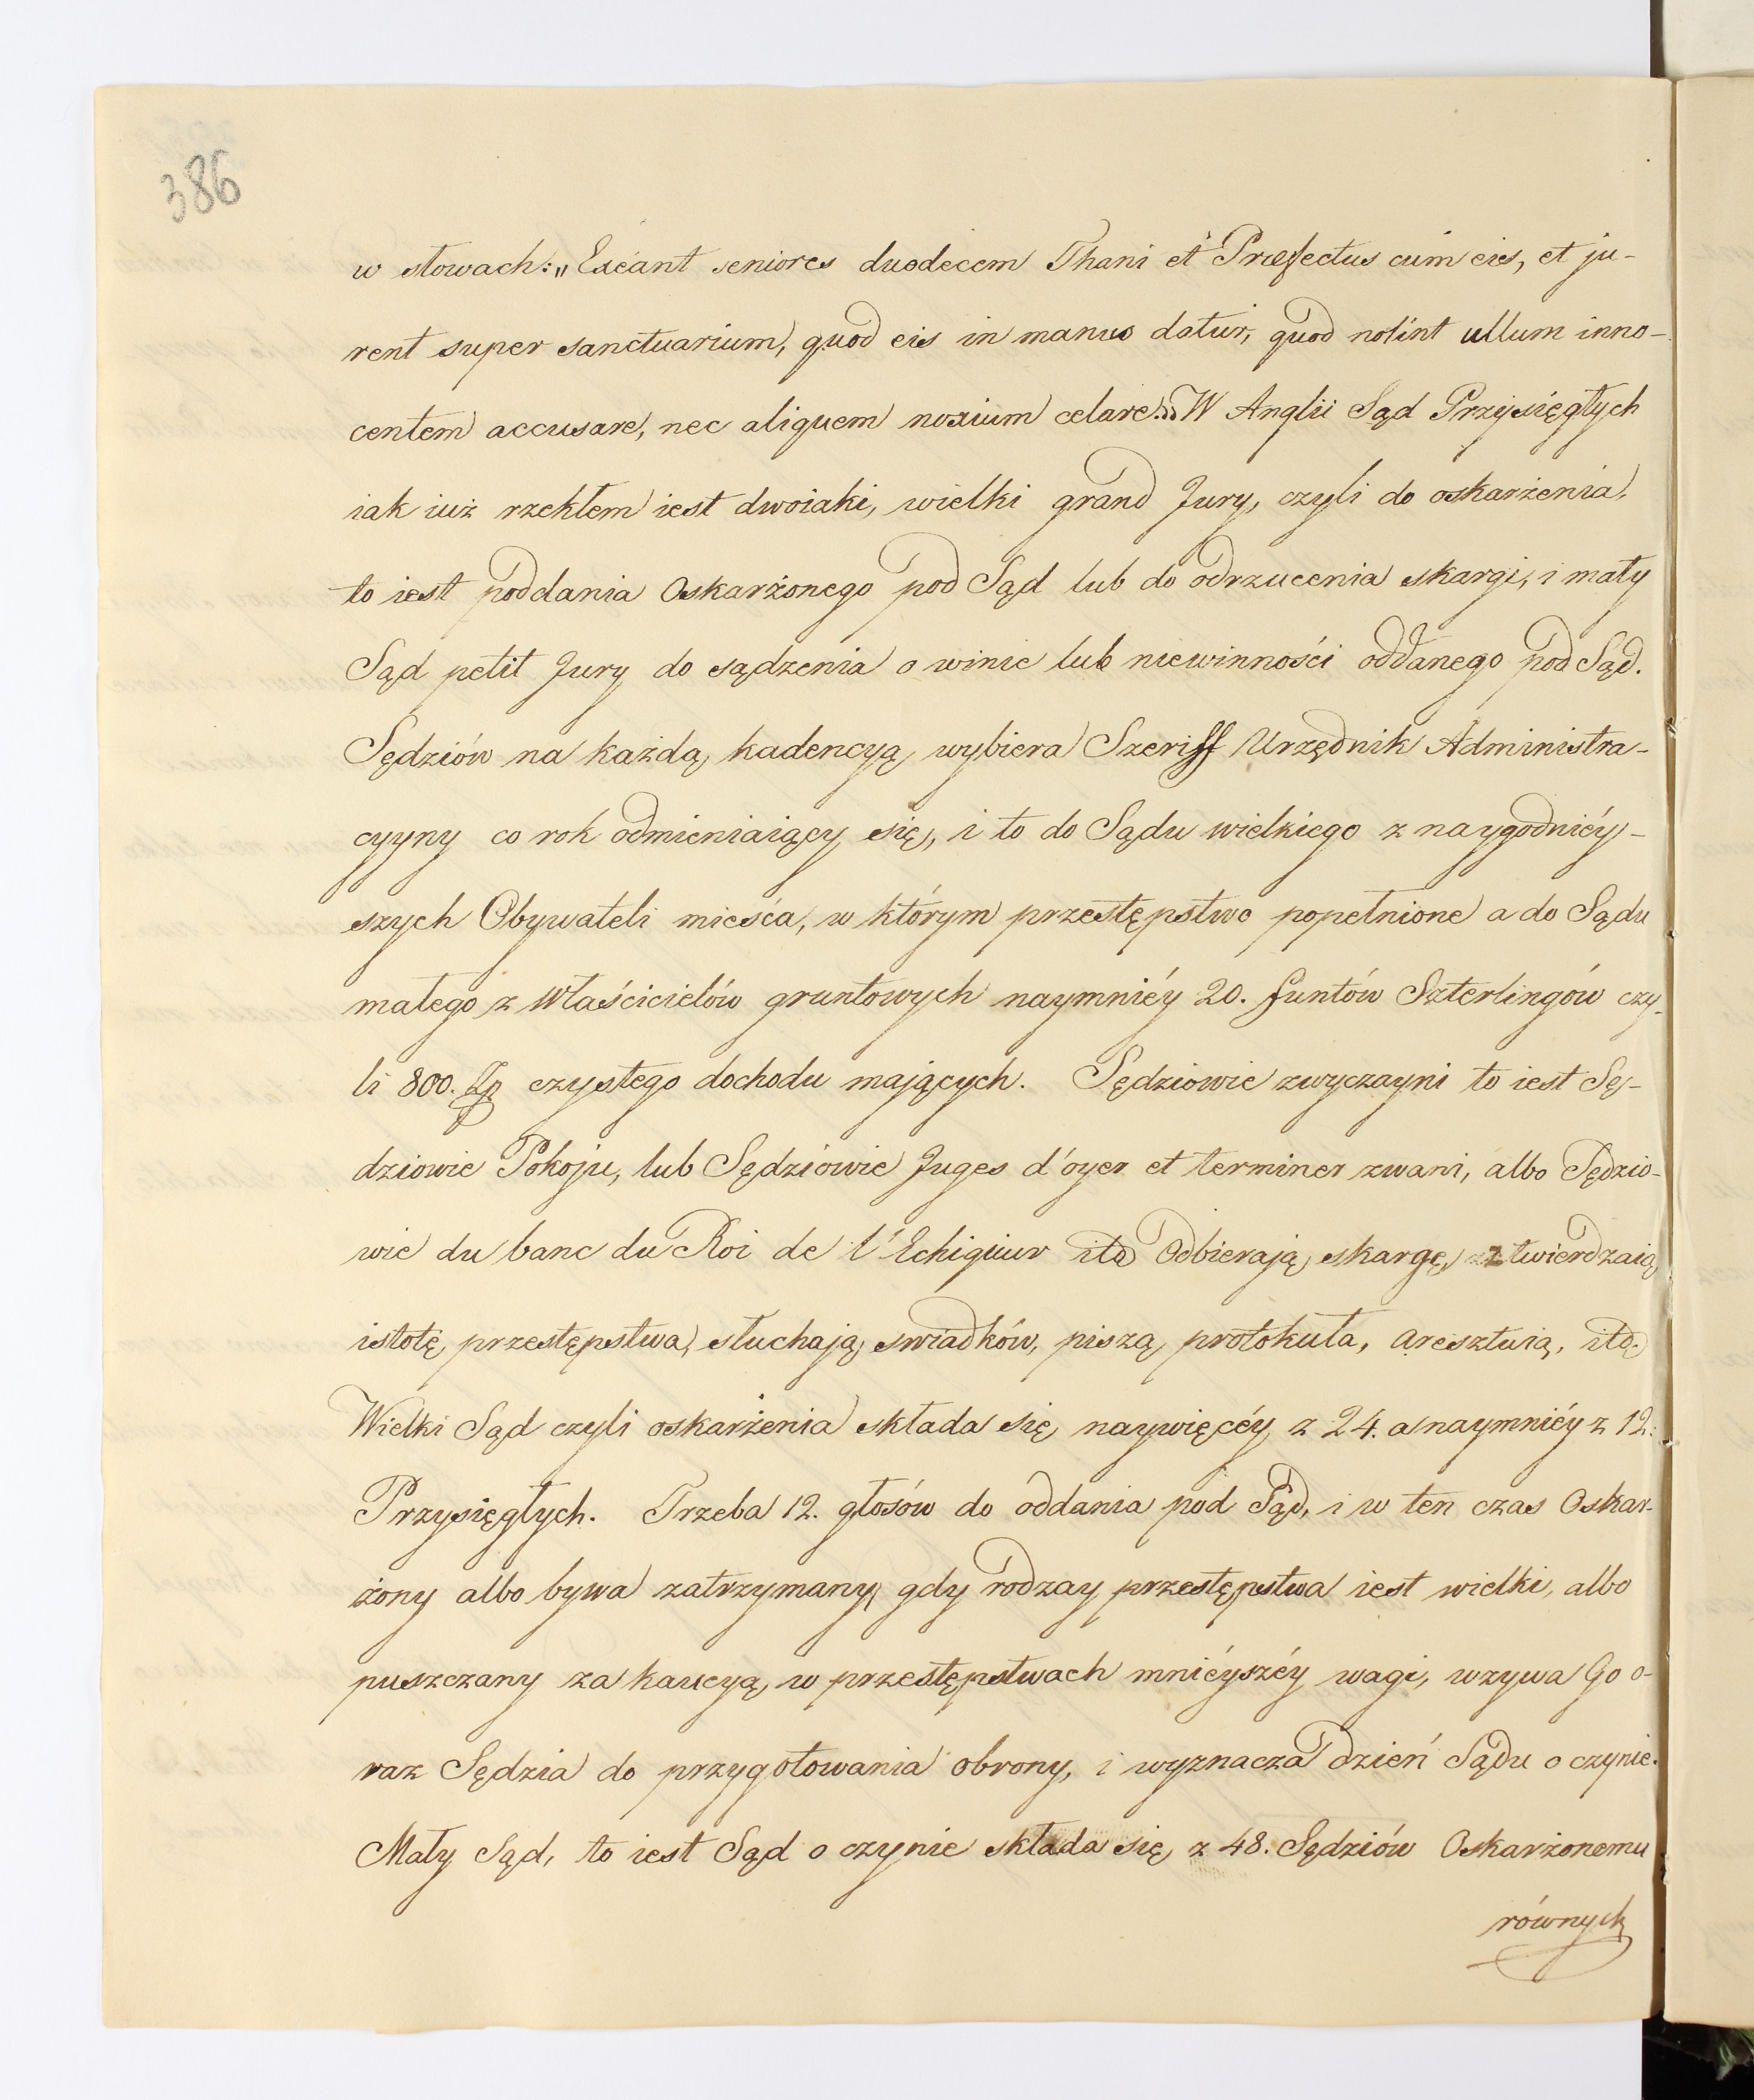 386
w słowach: „Exeant seniores duodecem Thani et Præfectus cum eis, et ju-
rent super sanctuarium, quod eis in manus datur, quod nolint ullum inno-
centem accusare, nec aliquem noxium celare.” W Anglii Sąd Przysięgłych
iak iuż rzekłem iest dwoiaki, wielki grand Jury, czyli do oskarżenia,
to iest poddania Oskarżonego pod Sąd lub do odrzucenia skargi, i mały
Sąd petit Jury do sądzenia o winie lub niewinności oddanego pod Sąd.
Sędziów na każdą kadencyą wybiera Szeriff Urzędnik Administra-
cyyny co rok odmieniaiący się, i to do Sądu wielkiego z naygodniéy-
szych Obywateli mieśca, w którym przestępstwo popełnione a do Sądu
małego z Właścicielów gruntowych naymniéy 20. funtów Szterlingów czy-
li 800. Zp czystego dochodu mających. Sędziowie zwyczayni to iest Sę-
dziowie Pokoju, lub Sędziowie Juges d'oyer et terminer zwani, albo Sędzio-
wie du banc du Roi de l'Echiquiur itd Odbierają skargę, twierdzaią
istotę przestępstwa, słuchają swiadków, piszą protokuła, aresztuią, itd.
Wielki Sąd czyli oskarżenia składa się naywięcéy z 24. a naymniéy z 12.
Przysięgłych. Trzeba 12. głosów do oddania pod Sąd, i w ten czas Oskar-
żony albo bywa zatrzymany, gdy rodzay przestępstwa iest wielki, albo
puszczany za kaucyą, w przestępstwach mniéyszéy wagi, wzywa Go o-
raz Sędzia do przygotowania obrony, i wyznacza dzień Sądu o czynie.
Mały Sąd, to iest Sąd o czynie składa się z 48. Sędziów Oskarżonemu
równych